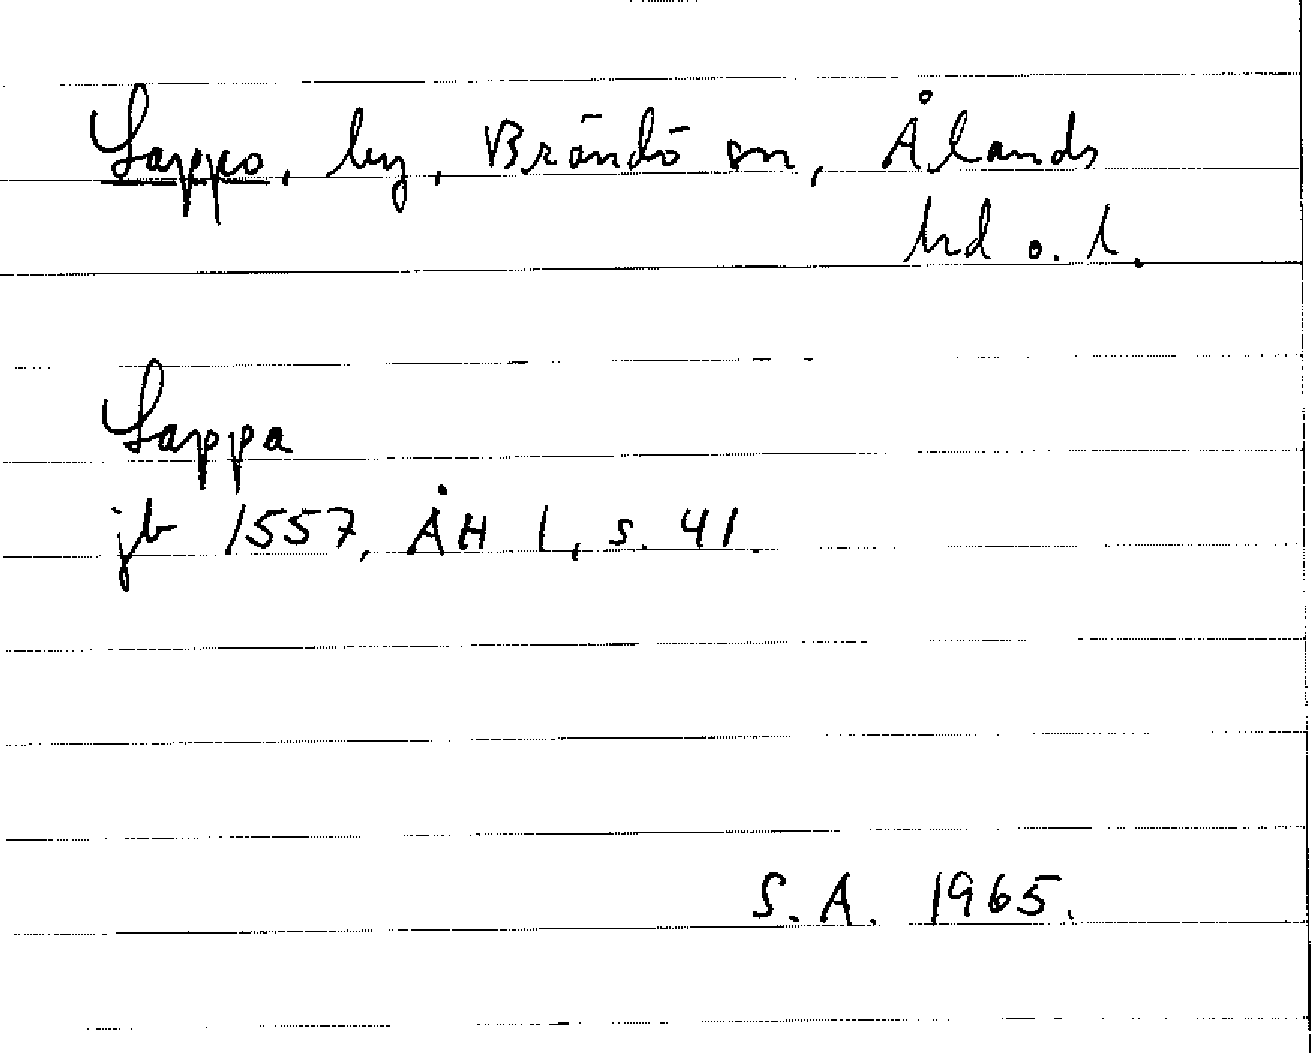 Lappo, by, Brändö sn, Ålands
hd o. l.
Lappa
jb 1557, ÅH I, s. 41.
S. A. 1965.